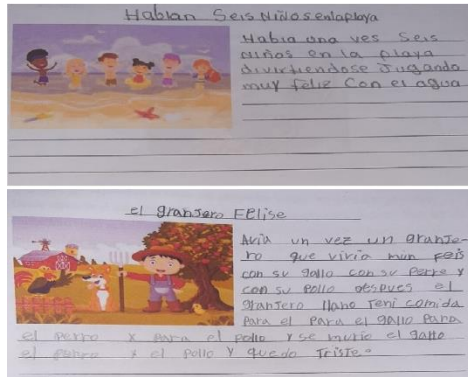 Hablan Seis Niños enlaplaya
Habia una ves Seis
niños en la playa
divirtiendose Jugando
muy feliz Con el agua
el granjero FElise
Avia un vez un granje-
ro que vivia mun Feis
con su gallo con su Perre y
con su pollo despues el
granjero llano Teni comida
Para el Para el gallo Para
el perro y para el pollo y se murio el gallo
el perro y el pollo y quedo Triste.